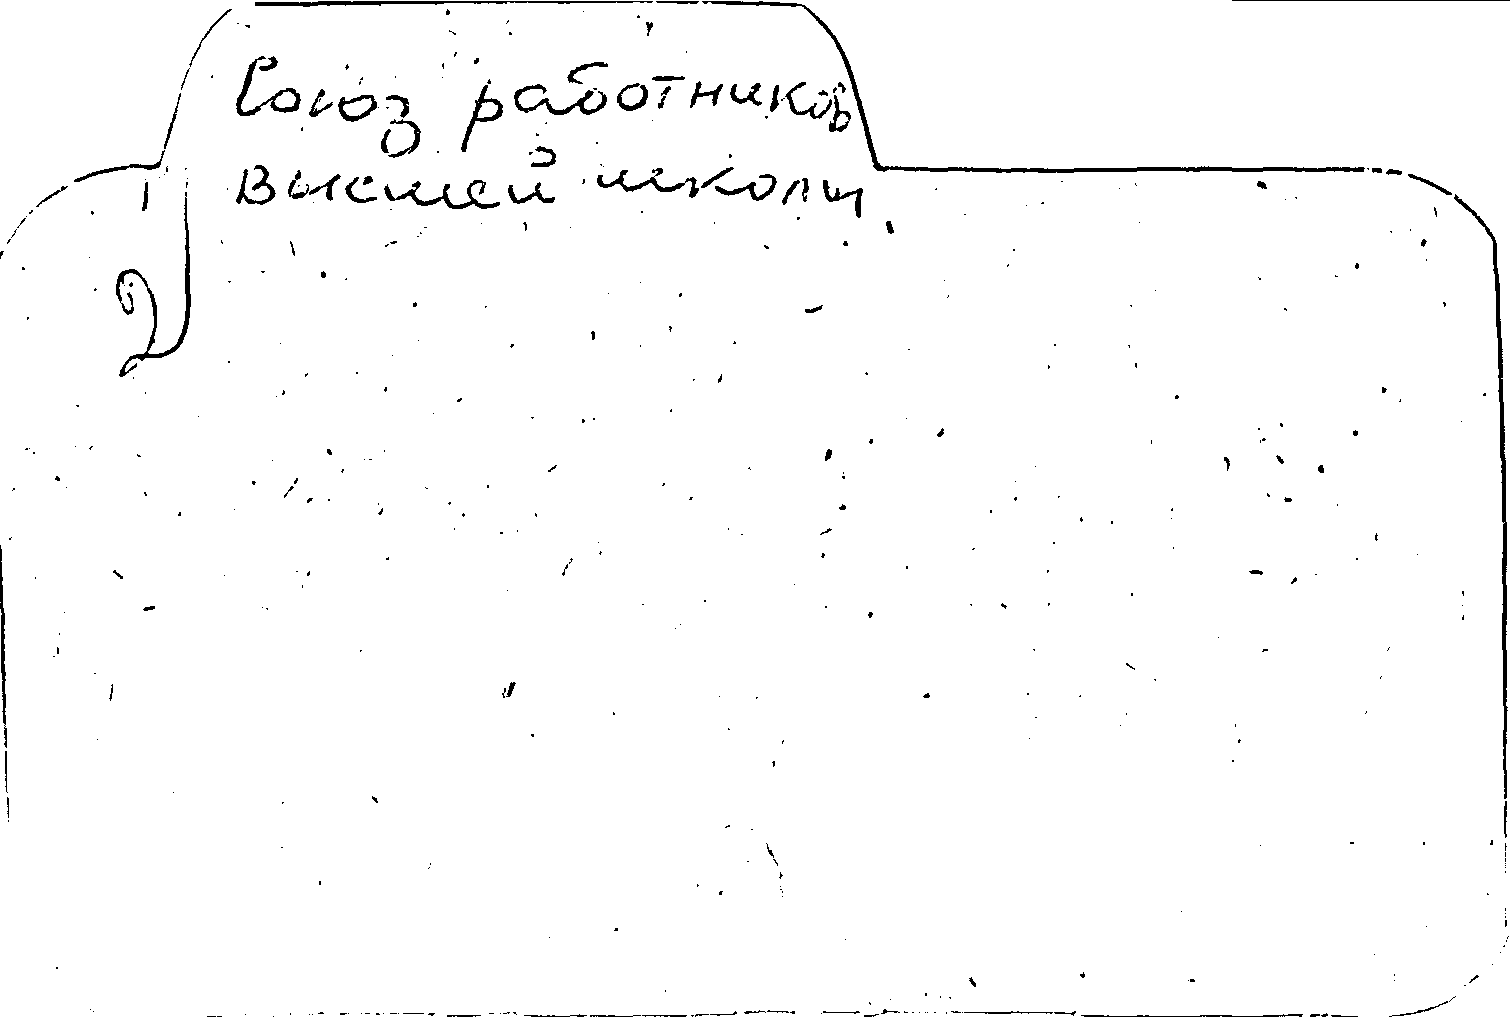 Союз работников
высшей школы
2